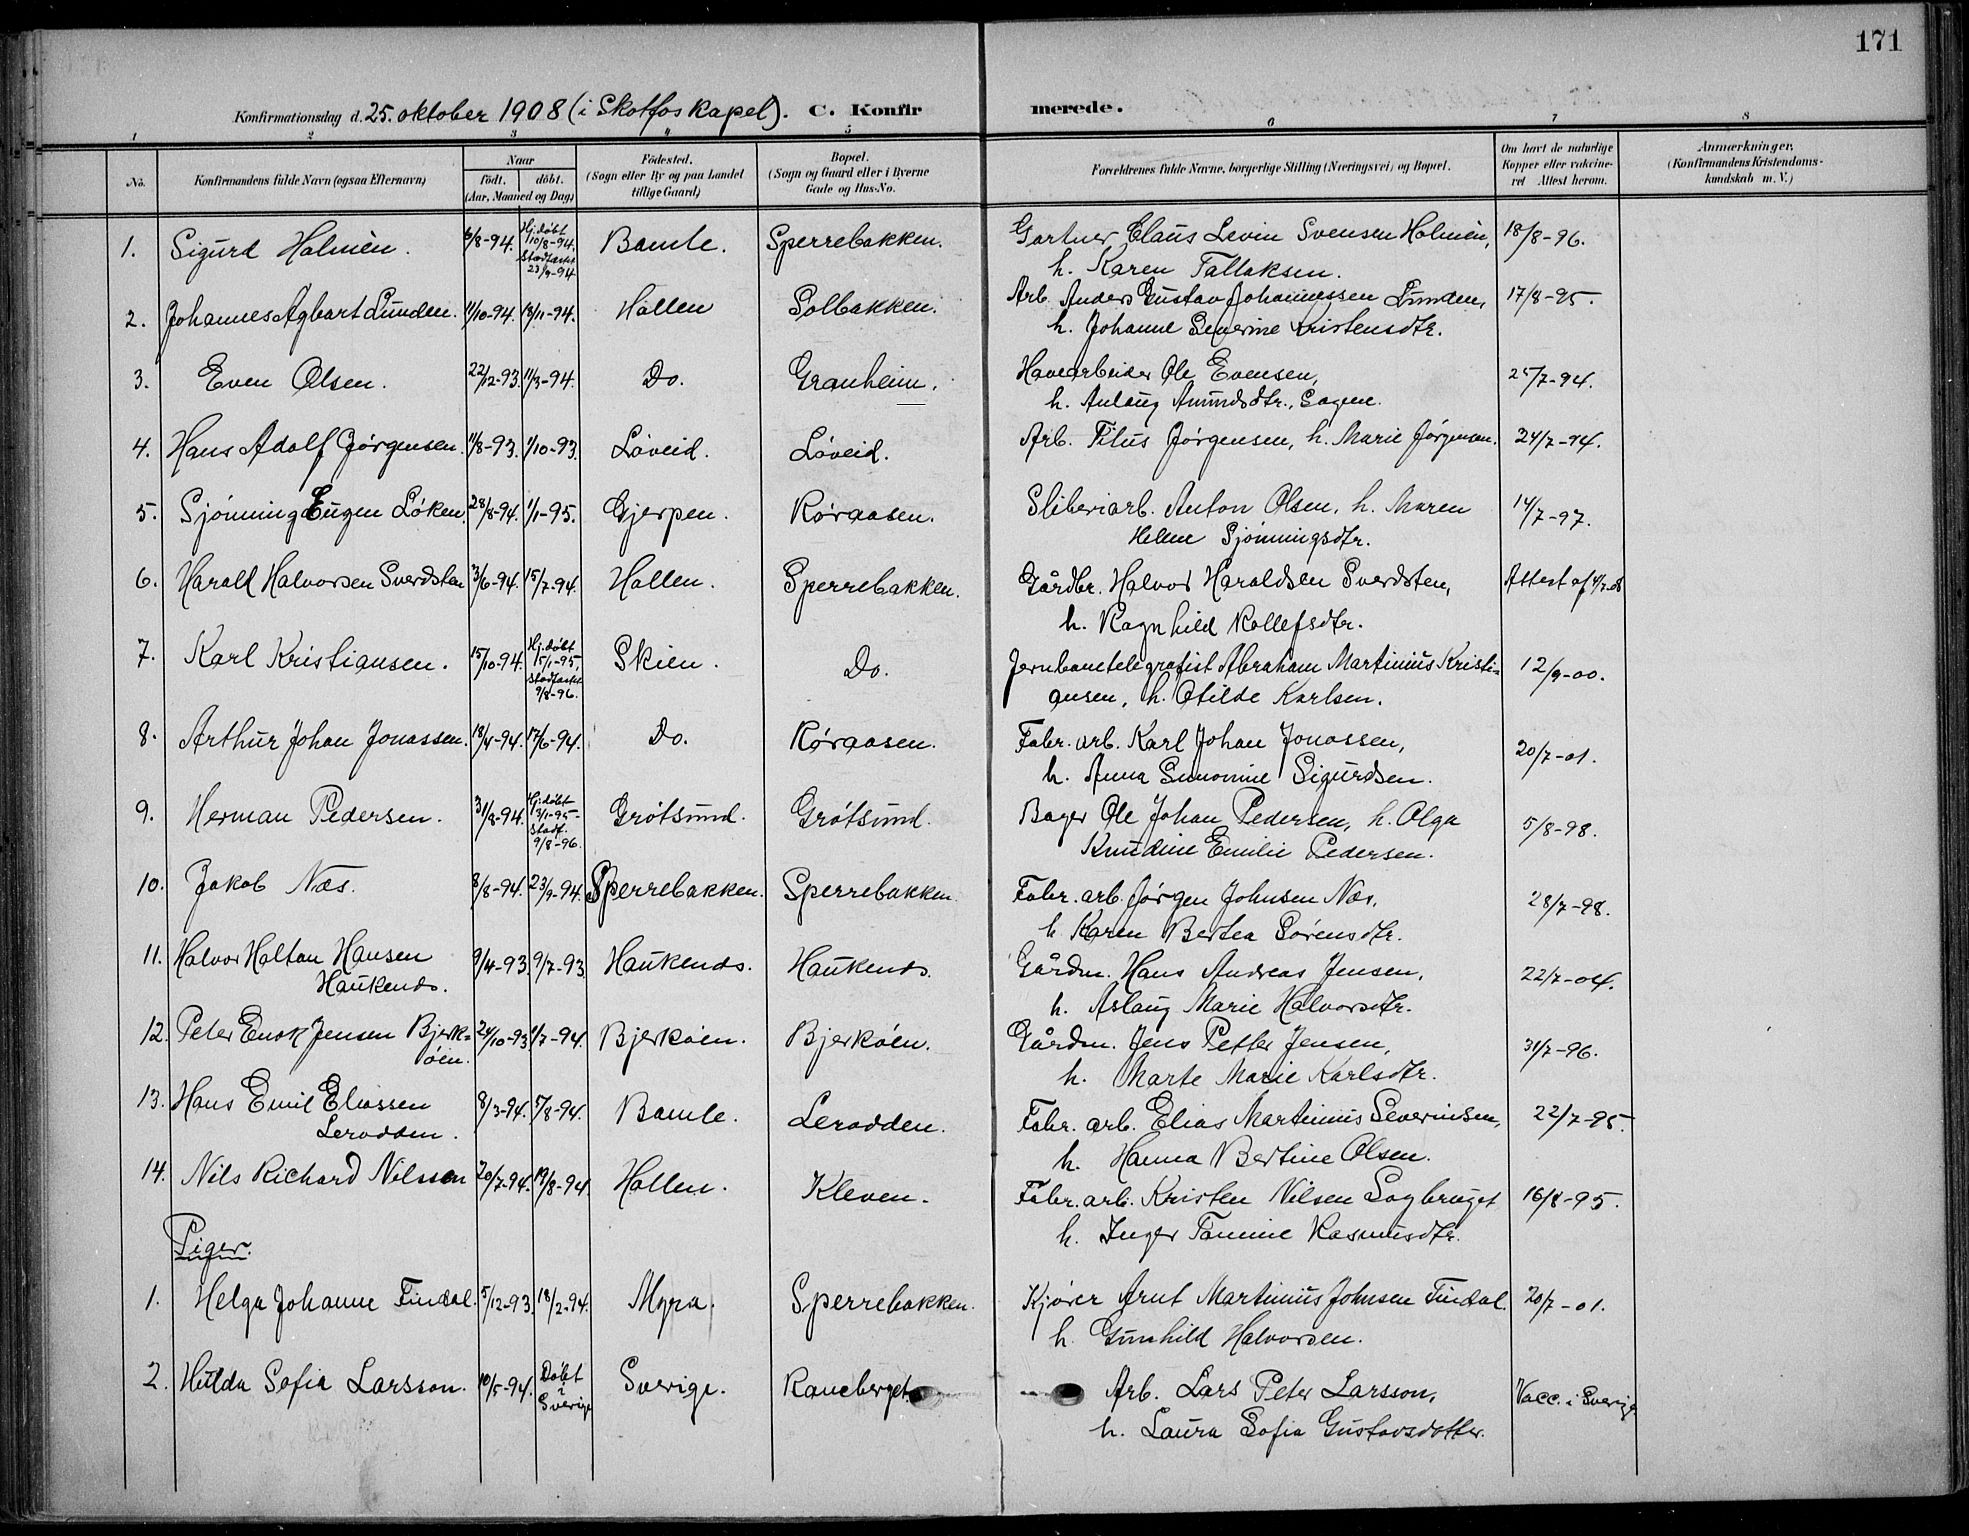 171
Konfirmationsdag d. 25. oktober 1908 (i Skotfos kapel). C. Konfirmerede.
1 2 3 4 5 6 7 8
No.
Konfirmandens fulde Navn (ogsaa Efternavn)
Naar
født. døbt.
(Aar, Maaned og Dag)
Fødested.
(Sogn eller By og paa Landet
tillige Gaard)
Bopæl.
(Sogn og Gaard eller i Byerne
Gade og Hus-No.
Forældrenes fulde Navne, borgerlige Stilling (Næringsvei) og Bopæl.
Om havt de naturlige
Kopper eller vakcine-
ret Attest herom.
Anmærkninger,
(Konfirmandens Kristendoms-
kundskab m. V.)
1. Sigurd Holmén. 6/8-94. Hj. døbt 10/8-94. Stadfæstet 23/9-94. Bamle. Sperrebakken. Gartner Claus Levin Svensen Holmén, 18/8-96.
h. Karen Tallaksen.
2. Johannes Agbart Lunden. 11/10-94. 18/11-94. Hollen Solbakken. Arb. Anders Gustav Johannessen Lunden, 17/8-95.
h. Johanne Severine Kristensdtr.
3. Even Olsen. 22/12-93. 11/3-94. Do. Granheim. Havearbeider Ole Evensen, 25/7-94.
h. Aslaug Amundsdtr., Sagene.
4. Hans Adolf Jørgensen. 11/8-93. 1/10-93. Løveid. Løveid. Arb. Titus Jørgensen, h. Marie Jørgensen. 24/7-94.
5. Sjønning Eugen Løken. 28/8-94. 1/1-95. Gjerpen. Røraasen. Sliberiarb. Anton Olsen, h. Maren 14/7-97.
Helene Sjønningsdtr.
6. Harald Halvorsen Sverdsten 3/6-94. 15/7-94. Hollen. Sperrebakken. Gårdbr. Halvor Haraldsen Sverdsten, Attest af 4/7-08
h. Ragnhild Rollefsdtr.
7. Karl Kristiansen. 15/10-94. Hj. døbt 15/1-95, Stadfæstet 9/8-96. Skien. Do. Jernbanetelegrafist Abraham Martinius Kristi= 12/9-00.
ansen, h. Otilde Karlsen.
8. Arthur Johan Jonassen. 18/4-94. 17/6-94. Do. Røraasen. Fabr. arb. Karl Johan Jonassen, 20/7-01.
h. Anna Sigurdsen.
9. Herman Pedersen. 31/8-94. Hj. døbt 3/1-95- Stadf. 9/8-96. Grøtsund. Grøtsund. Bager Ole Johan Pedersen, h. Olga 5/8-98.
Knudine Emilie Pedersen.
10. Jakob Næs. 8/8-94. 23/9-94. Sperrebakken. Sperrebakken. Fabr. arb. Jørgen Johnsen Næs, 28/7-98.
h. Karen Bertea Sørensdtr.
11. Halvor Holtan Hansen 9/4-93. 9/7-93. Haukenes. Haukenes. Gårdm. Hans Andreas Jensen, 22/7-04.
Haukenes. h. Aslaug Marie Halvorsdtr.
12. Peter Enok Jensen Bjerk= 24/10-93. 1/7-94. Bjerkøen. Bjerkøen. Gårdm. Jens Petter Jensen, 31/7-96.
øen. h. Marte Marie Karlsdtr.
13. Hans Emil Eliassen 8/3-94. 5/8-94. Bamle. Lerodden. Fabr. arb. Elias Martinius Severinsen, 22/7-95.
Lerodden. h. Hanna Bertine Olsen.
14. Nils Richard Nilsson 20/7-94. 19/8-94. Hollen. Kleven. Fabr. arb. Kristen Nilsen Sagbruget 16/8-95.
h. Inger Tomine Rasmusdtr.
Piger.
1. Helga Johanne Findal. 5/12-93. 18/2-94. Myra. Sperrebakken. Kjører Arnt Martinius Johnsen Findal. 20/7-01.
h. Gunhild Halvorsen.
2. Hulda Sofia Larsson. 10/5-94. Døbt i Sverige Sverige. Raneberget. Arb. Lars Peter Larsson, Vacc. i Sverige
h. Laura Sofia Gustavsdotter.